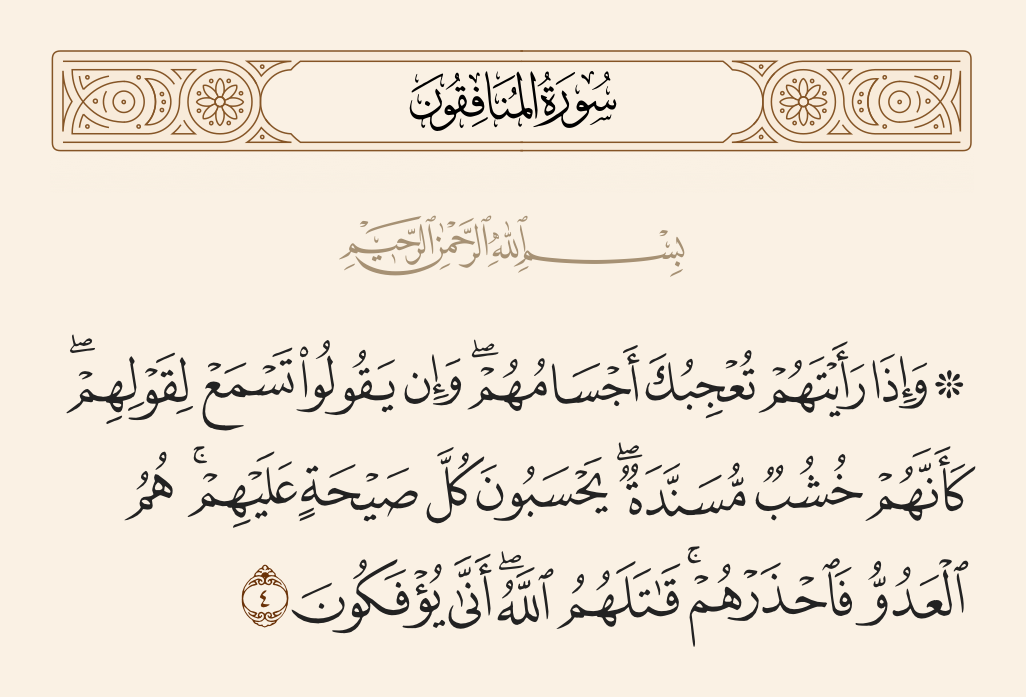 سُورَةُ المُنَافِقُونَ
بِسْمِ ٱللَّهِ ٱلرَّحْمَٰنِ ٱلرَّحِيمِ
۞ وَإِذَا رَأَيْتَهُمْ تُعْجِبُكَ أَجْسَامُهُمْ ۖ وَإِن يَقُولُوا۟ تَسْمَعْ لِقَوْلِهِمْ ۖ
كَأَنَّهُمْ خُشُبٌ مُّسَنَّدَةٌ ۖ يَحْسَبُونَ كُلَّ صَيْحَةٍ عَلَيْهِمْ ۚ هُمُ
ٱلْعَدُوُّ فَٱحْذَرْهُمْ ۚ قَٰتَلَهُمُ ٱللَّهُ ۖ أَنَّىٰ يُؤْفَكُونَ ٤